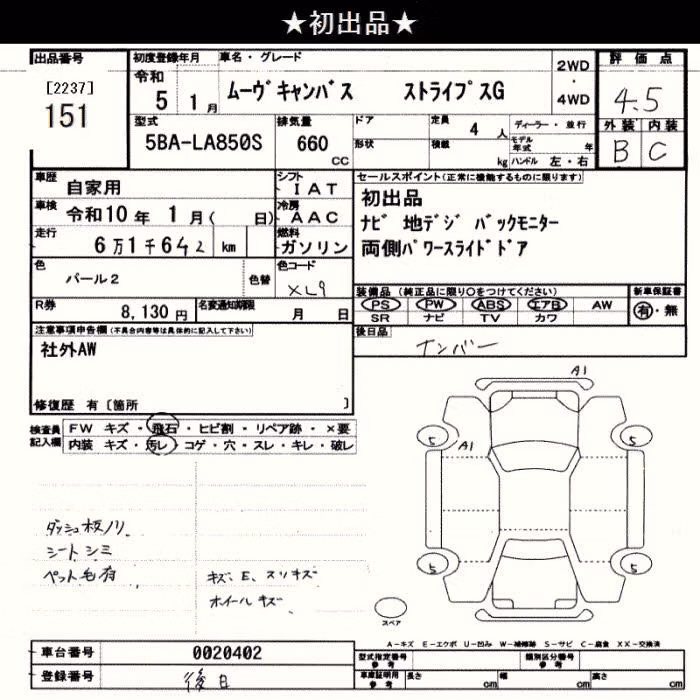 ★初出品★
出品番号
[2237]
151
初度登録年月
令和
5 1月
車名・グレード
ムーヴキャンバス ストライプスG
2WD
・
4WD
評価点
4.5
外装 内装
B C
型式
5BA-LA850S
排気量
660
cc
ドア
形状
定員
4人
積載
kg
ディーラー・並行
モデル年式 年
ハンドル 左・右
車歴
自家用
シフト
IAT
車検
令和10年 1月( 日)
冷房
AAC
走行
6万1千642 km
燃料
ガソリン
色
パール2
色替
色コード
XL9
R券
8,130円
名変通知期限
月 日
セールスポイント(正常に機能するものに限ります)
初出品
ナビ 地デジ バックモニター
両側パワースライドドア
装備品(純正品に限り○をつけてください)
PS PW ABS エアB AW
SR ナビ TV カワ
新車保証書
有・無
後日品
ナンバー
注意事項申告欄(不具合内容等は具体的に記入して下さい)
社外AW
修復歴 有〔箇所 〕
検査員
記入欄
FW キズ・飛石・ヒビ割・リペア跡・×要
内装 キズ・汚レ・コゲ・穴・スレ・キレ・破レ
ダッシュ板ノリ
シートシミ
ペット毛有
キズ、E、スリキズ
ホイールキズ
A1
A1
5
5
5
5
スペア
A-キズ E-エクボ U-凹み W-補修跡 S-サビ C-腐食 XX-交換済
車台番号
0020402
登録番号
後日
型式指定番号
参考
類別区分番号
参考
車庫証明用
参考
長さ cm
幅 cm
高さ cm